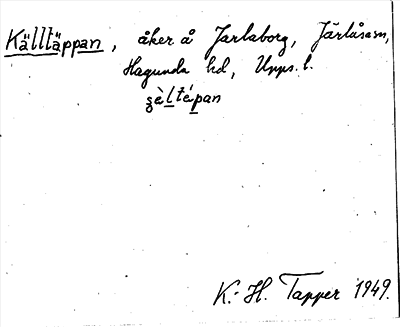 Källtäppan, åker å Jarlaborg, Järlåsa sn,
Hagunda hd, Upps. l.
K.-H. Tapper 1949.